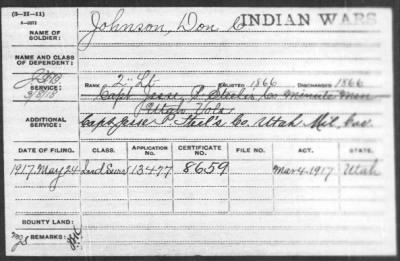 (3-2)
INDIAN WARS
NAME OF SOLDIER: Johnson, Don C
NAME AND CLASS OF DEPENDENT:
SERVICE: RANK 2" Lt. ENLISTED 1866 DISCHARGED 1866
Capt Jesse P. Steele's Co Minute Men
(Utah Vols)
ADDITIONAL SERVICE: Capt Jesse P. Steel's Co. Utah Mil. Cav.
DATE OF FILING. CLASS. APPLICATION No. CERTIFICATE No. FILE NO. ACT. STATE.
1917 May 24 Ind Surv 13477 8659 Mar 4-1917 Utah
BOUNTY LAND:
REMARKS: